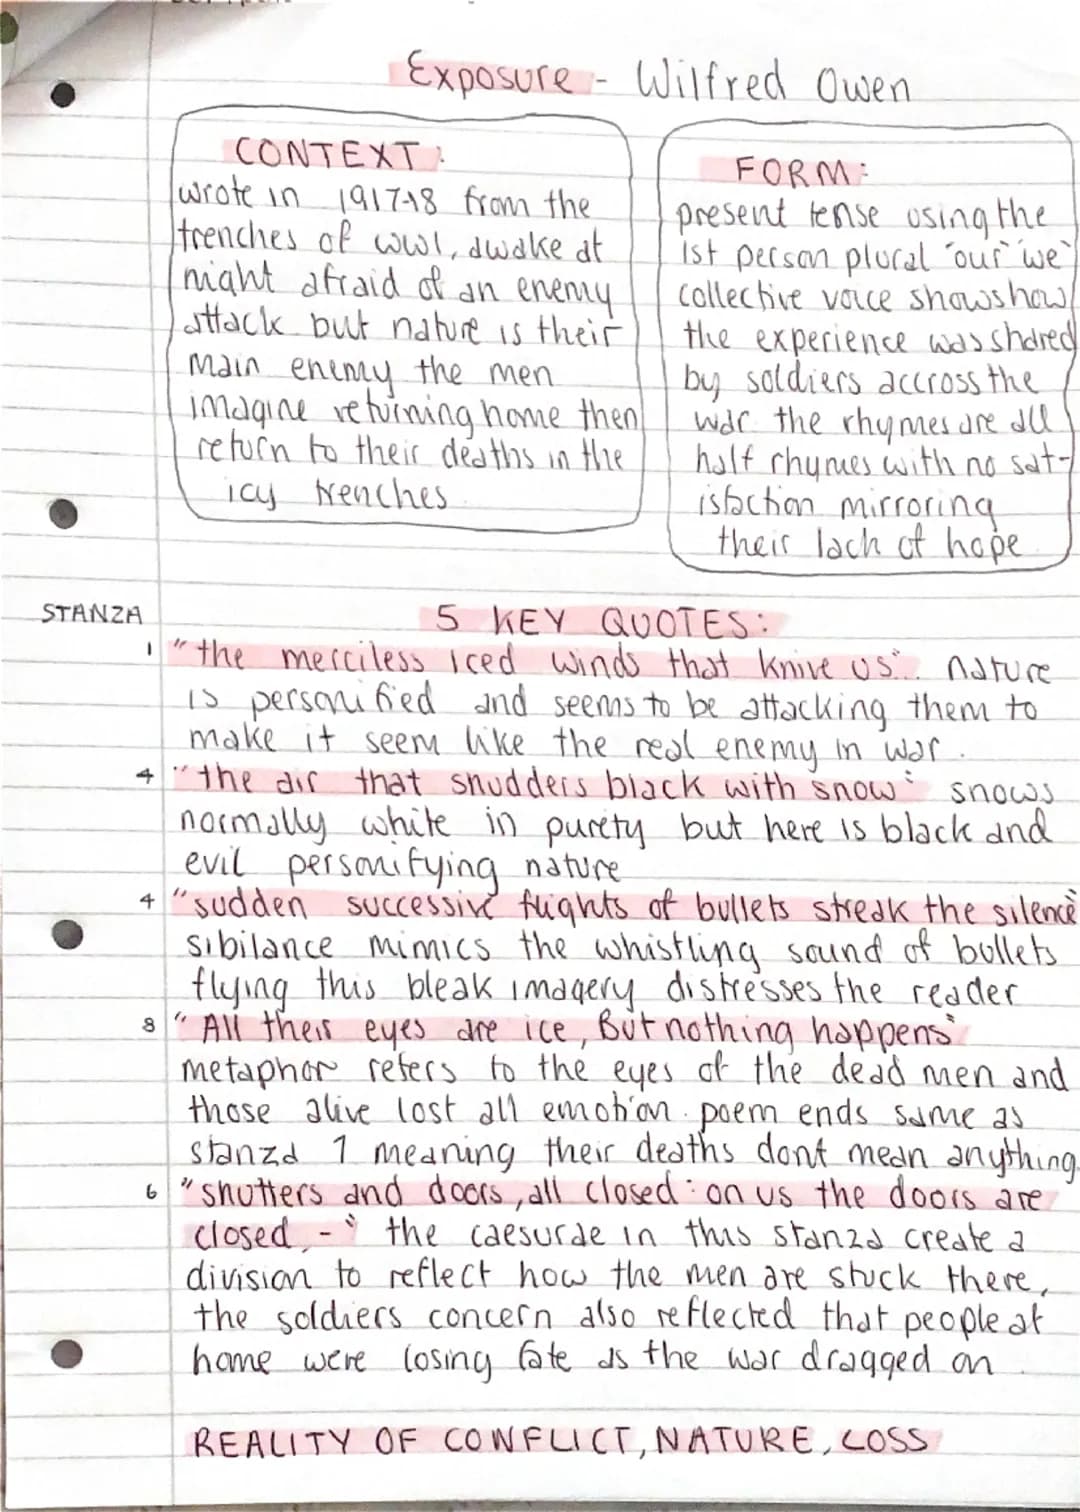 Exposure - Wilfred Owen
CONTEXT:
wrote in 1917-18 from the
trenches of WW1, awake at
night afraid of an enemy
attack but nature is their
main enemy the men
imagine returning home then
return to their deaths in the
icy trenches
FORM:
present tense using the
1st person plural "our" "we"
collective voice shows how
the experience was shared
by soldiers accross the
war. the rhymes are all
half rhymes with no sat-
isfaction mirroring
their lack of hope
STANZA
5 KEY QUOTES:
1 "the merciless iced winds that knive us".. nature
is personified and seems to be attacking them to
make it seem like the real enemy in war.
4 "the air that shudders black with snow" snows
normally white in purety but here is black and
evil personifying nature
4 "sudden successive flights of bullets streak the silence"
sibilance mimics the whistling sound of bullets
flying this bleak imagery distresses the reader
8 "All their eyes are ice, But nothing happens"
metaphor refers to the eyes of the dead men and
those alive lost all emotion. poem ends same as
stanza 1 meaning their deaths dont mean anything.
6 "shutters and doors, all closed: on us the doors are
closed, -" the caesurae in this stanza create a
division to reflect how the men are stuck there,
the soldiers concern also reflected that people at
home were losing fate as the war dragged on.
REALITY OF CONFLICT, NATURE, LOSS